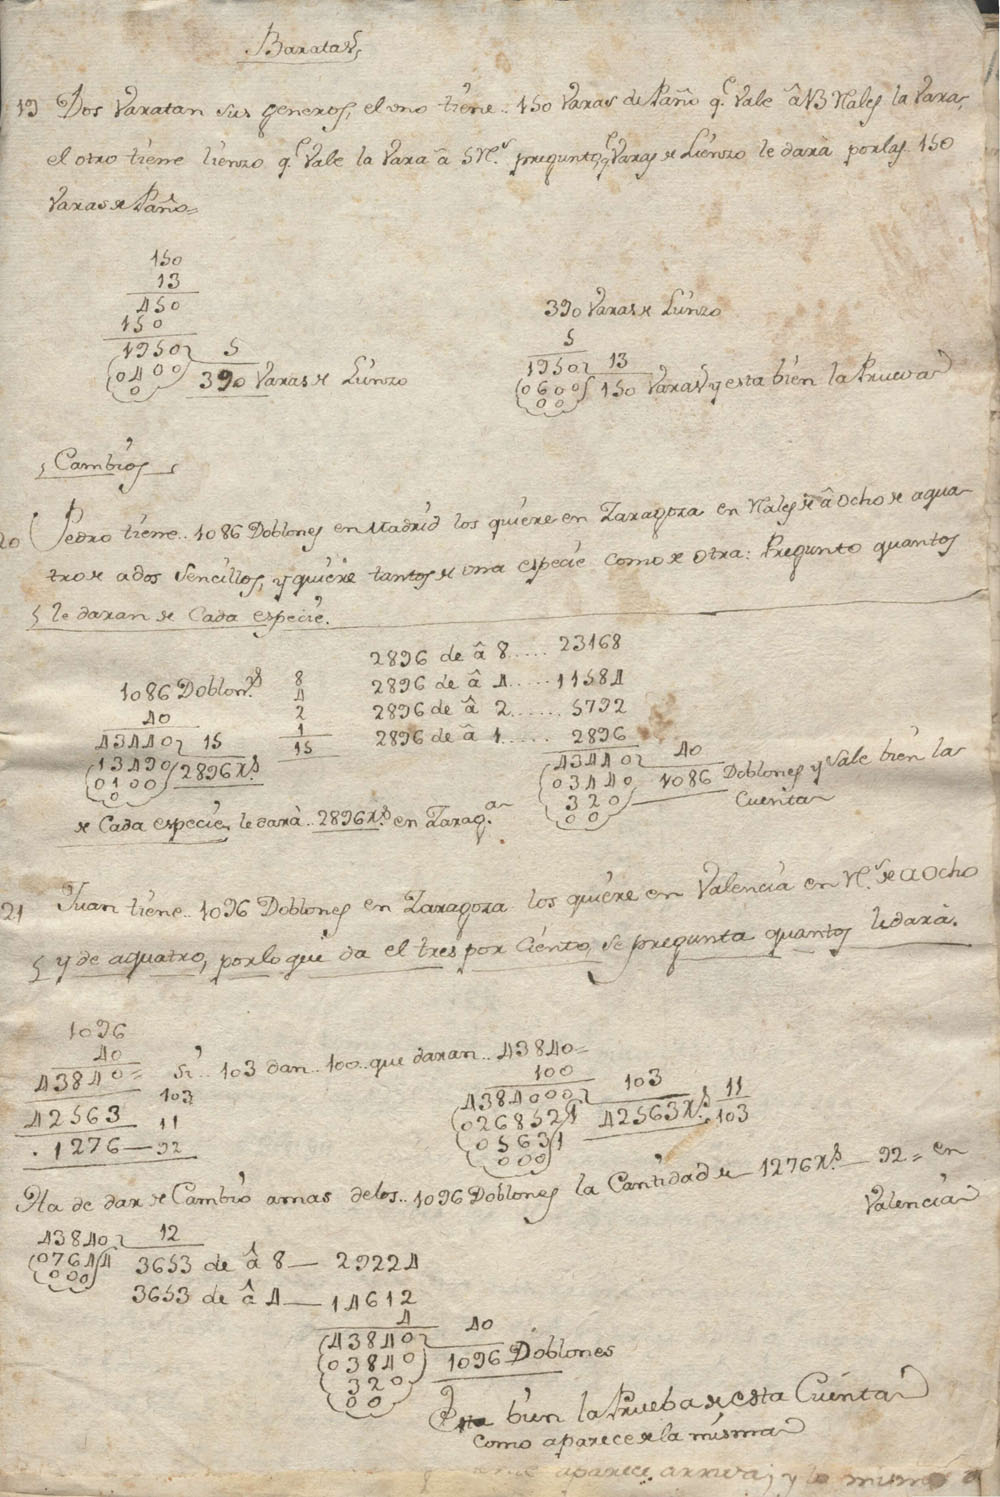 Baratas,
19 Dos Varatan sus generos, el vno tiene.. 150 Varas de Paño q.e Vale â 13 Rales la Vara,
el otro tiene lienzo q.e Vale la Vara â 5 R.s pregunto, q.e Varas de Lienzo le darà por las 150
Varas de Paño=
150
13
450
150
1950 5
0400 390 Varas de Lienzo
0
390 Varas de Lienzo
5
1950 13
0600 150 Varas y esta bien la Prueva
00
Cambios
20 Pedro tiene.. 1086 Doblones en Madrid los quiere en Zaragoza en Rales de â ocho de aqua-
tro de a dos Sencillos, y quiere tantos de una especie como de otra: Pregunto quantos
le daran de Cada especie.
1086 Doblon.s
40
43440 15
13490 2896 R.s
0100
0
8
4
2
1
15
2896 de â 8..... 23168
2896 de â 4..... 11584
2896 de â 2...... 5792
2896 de â 1...... 2896
43440 40
03440 1086 Doblones y Sale bien la
320 Cuenta
00
de Cada especie, le darà.. 2896 R.s en Zarag.a
21 Juan tiene.. 1096 Doblones en Zaragoza los quiere en Valencia en R.s de a ocho
y de aquatro, por lo que da el tres por Ciento, se pregunta quantos le darà.
1096
40
43840=
42563 103
11
.1276—92
Si.. 103 dan.. 100.. que daran.. 43840=
100
4384000 103
0268521 42563 R.s 11
05631 103
000
Ha de dar de Cambio amas delos.. 1096 Doblones la Cantidad de — 1276 R.s — 92= en
Valencia
43840 12
07644 3653 de â 8— 29224
000
3653 de â 4— 14612
4
43840 40
03840 1096 Doblones
320
00
Esta bien la Prueba de esta Cuenta
como aparece de la misma
aparece arriva; y lo mismo